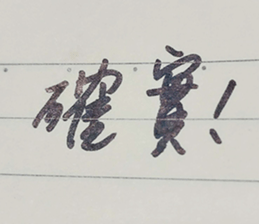 確實!